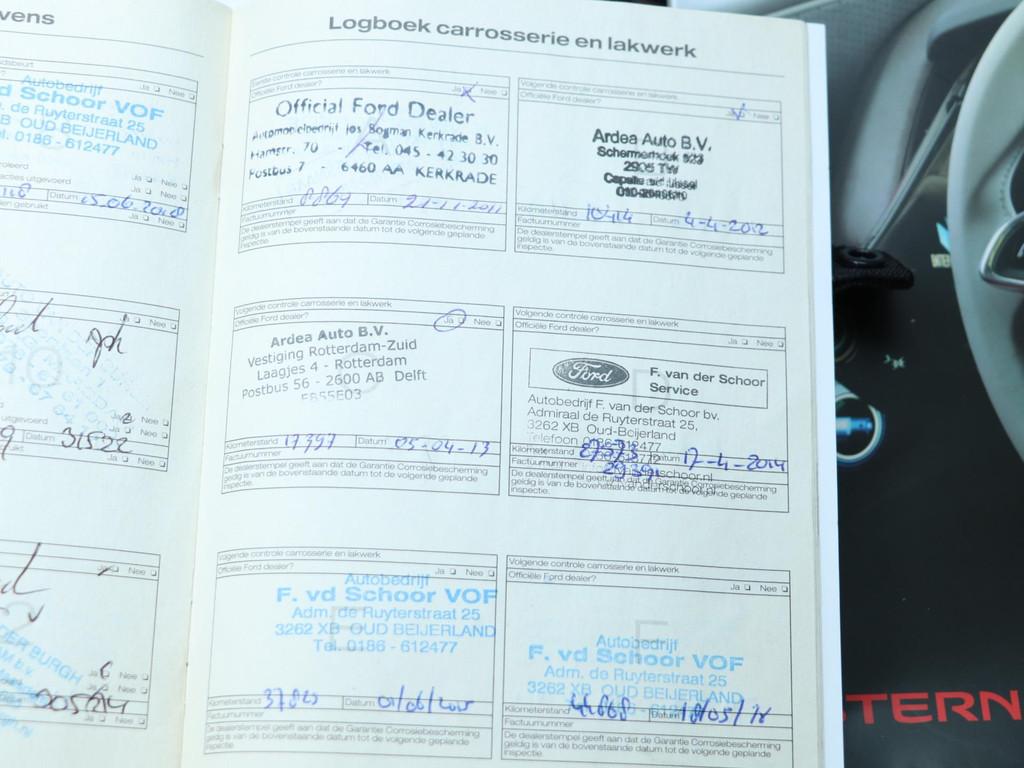 vens
Autobedrijf
vd Schoor VOF
de Ruyterstraat 25
XB OUD BEIJERLAND
0186 - 612477
Ja Nee
acties uitgevoerd Ja Nee
Datum
Ja Nee
Nee
Nee
Datum 31522
Ja Nee
Nee
Nee
Ja Nee
Logboek carrosserie en lakwerk
Eerste controle carrosserie en lakwerk
Officiële Ford dealer? Ja Nee
Official Ford Dealer
Automobielbedrijf Jos Bogman Kerkrade B.V.
Hamstr. 70 - Tel. 045 - 42 30 30
Postbus 7 - 6460 AA KERKRADE
Kilometerstand 8869 Datum 21-11-2011
Factuurnummer
De dealerstempel geeft aan dat de Garantie Corrosiebescherming
geldig is van de bovenstaande datum tot de volgende geplande
inspectie.
Volgende controle carrosserie en lakwerk
Officiële Ford dealer? Ja Nee
Ardea Auto B.V.
Schermerhoek 523
2905 TW
Capelle a/d IJssel
Kilometerstand 10414 Datum 4-4-2012
Factuurnummer
De dealerstempel geeft aan dat de Garantie Corrosiebescherming
geldig is van de bovenstaande datum tot de volgende geplande
inspectie.
Volgende controle carrosserie en lakwerk
Officiële Ford dealer? Ja Nee
Ardea Auto B.V.
Vestiging Rotterdam-Zuid
Laagjes 4 - Rotterdam
Postbus 56 - 2600 AB Delft
Kilometerstand 17397 Datum 05-04-13
Factuurnummer
De dealerstempel geeft aan dat de Garantie Corrosiebescherming
geldig is van de bovenstaande datum tot de volgende geplande
inspectie.
Volgende controle carrosserie en lakwerk
Officiële Ford dealer? Ja Nee
Ford F. van der Schoor
Service
Autobedrijf F. van der Schoor bv.
Admiraal de Ruyterstraat 25,
3262 XB Oud-Beijerland
Telefoon 0186-612477
Kilometerstand Datum 17-4-2014
Factuurnummer
De dealerstempel geeft aan dat de Garantie Corrosiebescherming
geldig is van de bovenstaande datum tot de volgende geplande
inspectie.
Volgende controle carrosserie en lakwerk
Officiële Ford dealer? Ja Nee
Autobedrijf
F. vd Schoor VOF
Adm. de Ruyterstraat 25
3262 XB OUD BEIJERLAND
Tel. 0186 - 612477
Kilometerstand Datum
Factuurnummer
De dealerstempel geeft aan dat de Garantie Corrosiebescherming
geldig is van de bovenstaande datum tot de volgende geplande
inspectie.
Volgende controle carrosserie en lakwerk
Officiële Ford dealer? Ja Nee
Autobedrijf
F. vd Schoor VOF
Adm. de Ruyterstraat 25
3262 XB OUD BEIJERLAND
Kilometerstand Datum
Factuurnummer
De dealerstempel geeft aan dat de Garantie Corrosiebescherming
geldig is van de bovenstaande datum tot de volgende geplande
inspectie.
STERN